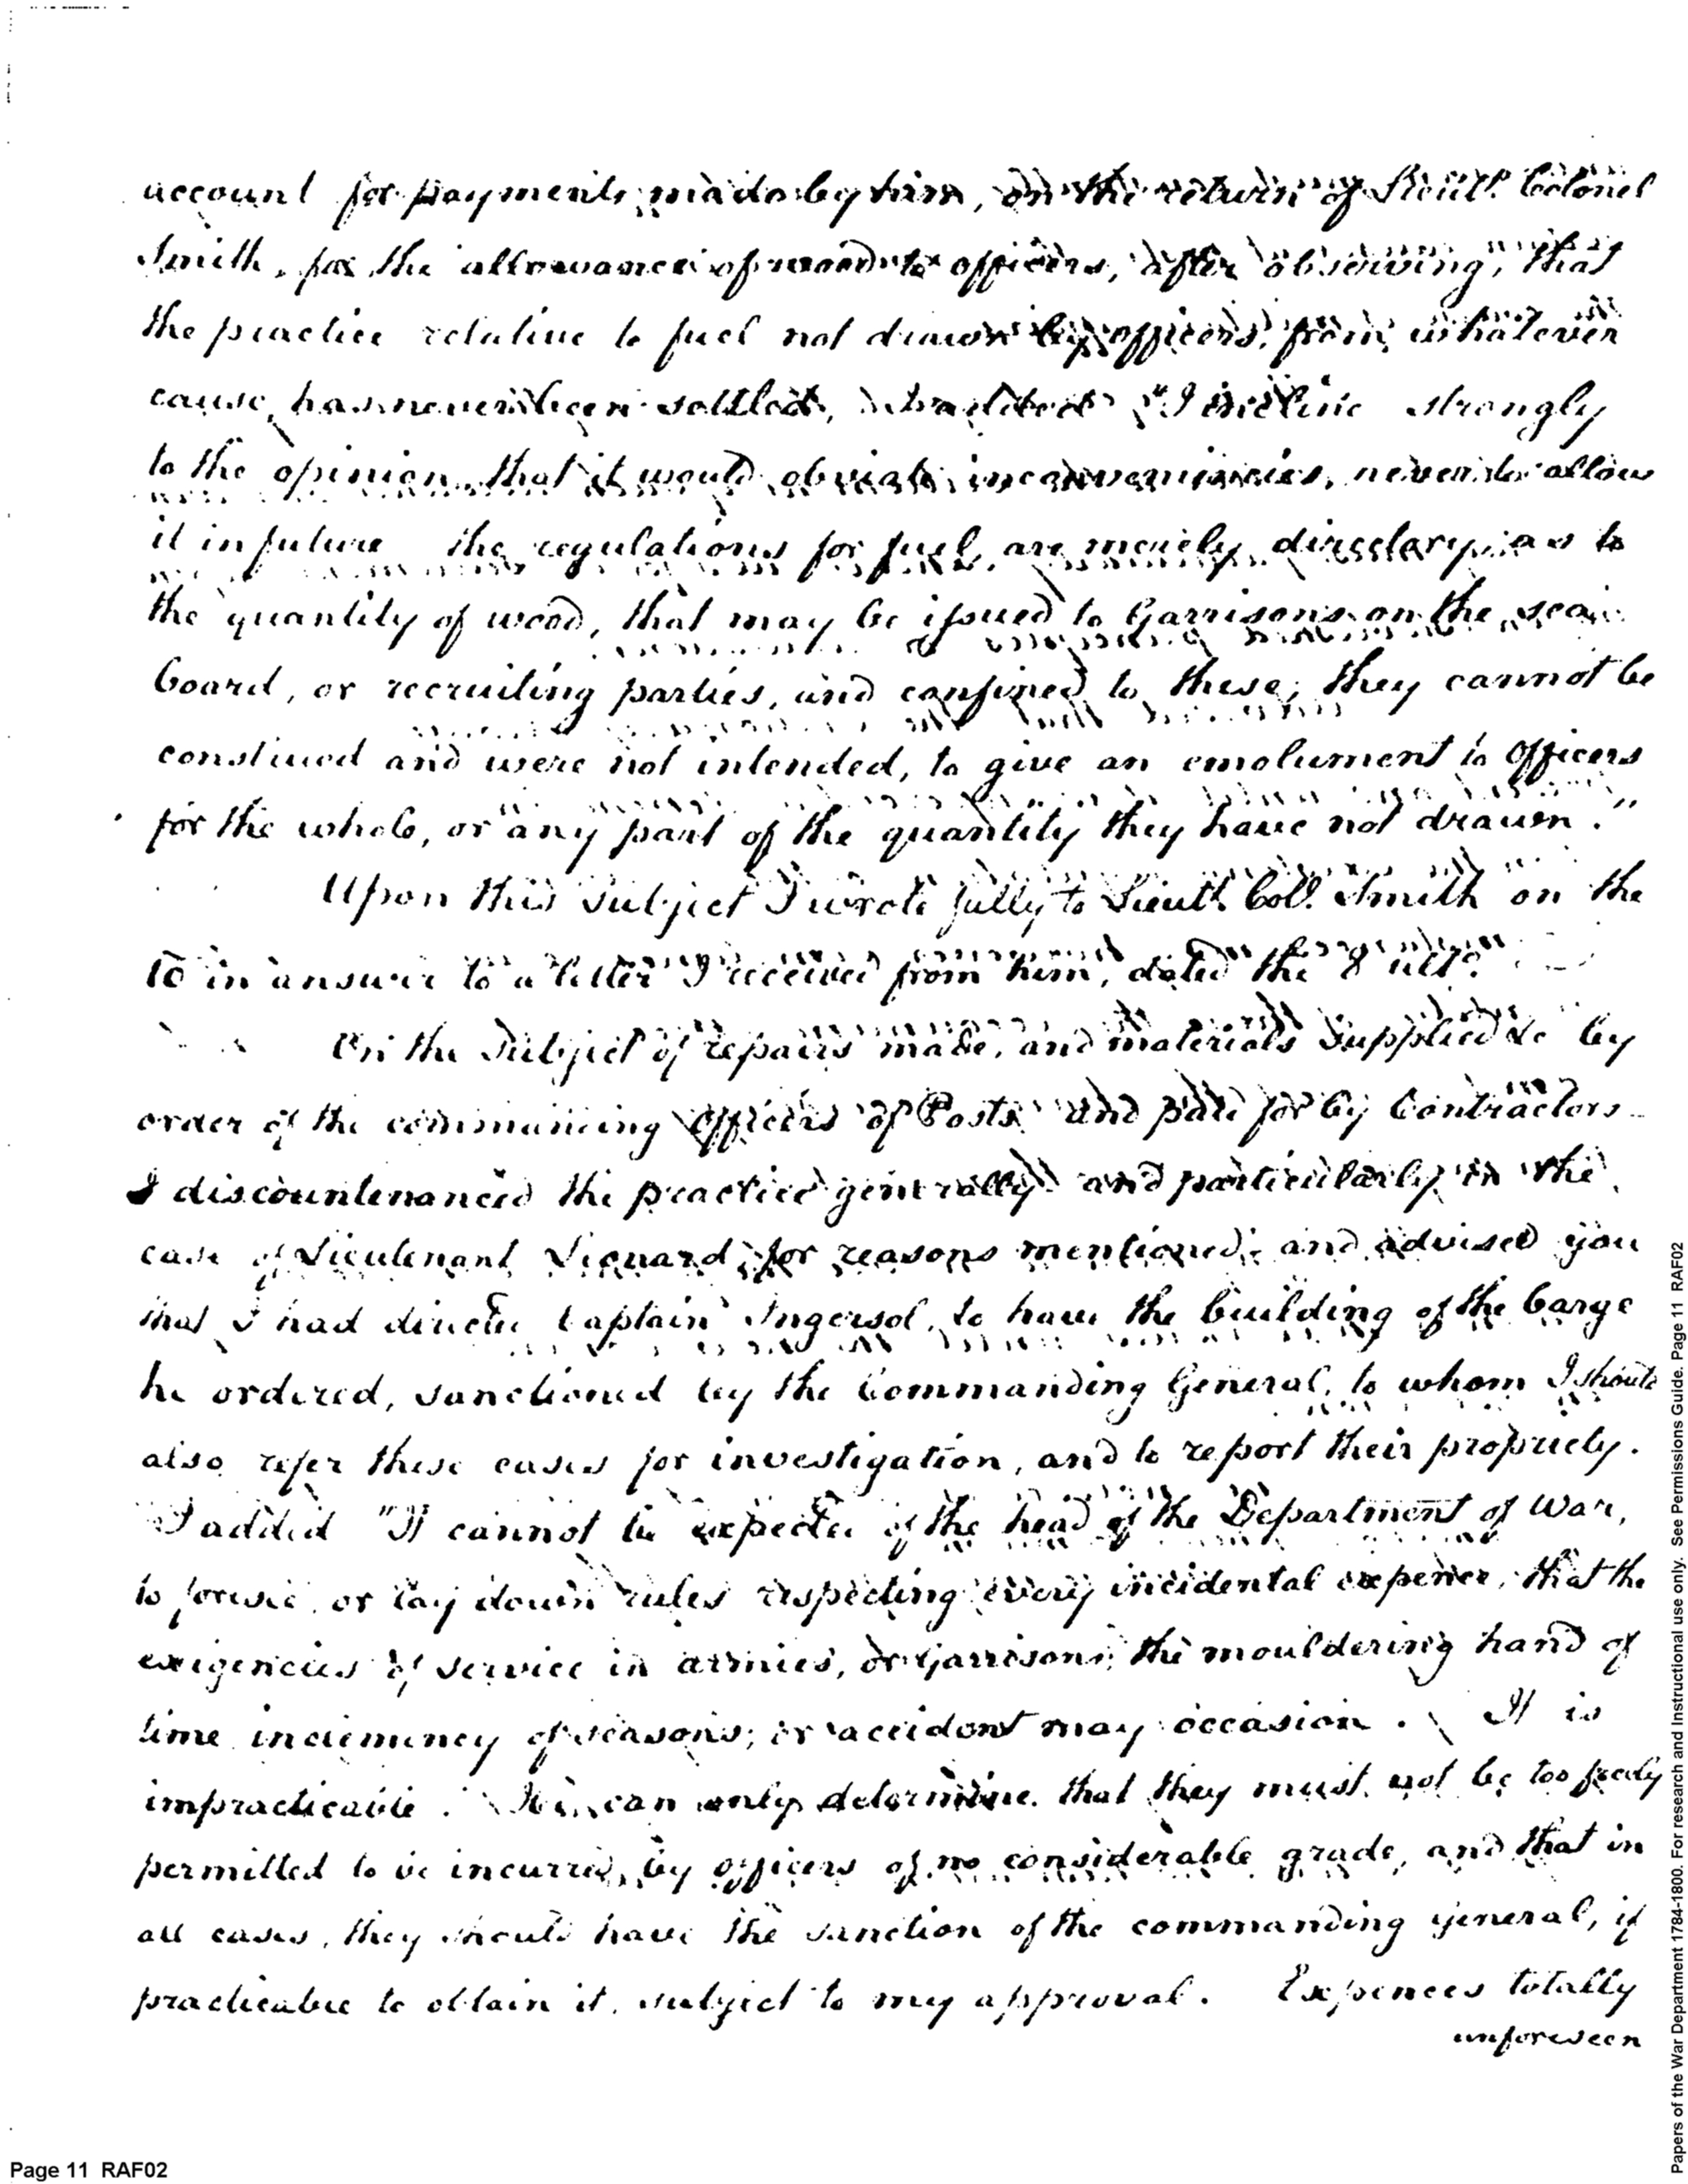 account for payments made by him, on the return of Lieut. Colonel
Smith, for the allowance of wood to officers, after observing, that
the practice relative to fuel not drawn by officers, from whatever
cause, has never been settled, I added "I incline strongly
to the opinion, that it would obviate inconveniencies, never to allow
it in future the regulations for fuel, are merely directory, as to
the quantity of wood, that may be issued to Garrisons on the sea
board, or recruiting parties, and confined to these, they cannot be
construed and were not intended, to give an emolument to Officers
for the whole, or any part of the quantity they have not drawn."
Upon this subject I wrote fully to Lieutt. Coll. Smith on the
10 in answer to a letter I received from him, dated the 8 ulto.
On the Subject of repairs made, and materials Supplied &c by
order of the commanding Officers of Posts and paid for by Contractors
I discountenanced the practice generally and particularly in the
case of Lieutenant Leonard, for reasons mentioned, and advised you
that I had directed Captain Ingersol, to have the building of the barge
he ordered, sanctioned by the Commanding General, to whom I should
also refer these cases for investigation, and to report their propriety.
I added "It cannot be expected of the head of the Department of War,
to foresee, or lay down rules respecting every incidental expence, that the
exigencies of service in armies, or Garrisons, the mouldering hand of
time inclemency of seasons, or accident may occasion. It is
impracticable. He can only determine that they must not be too freely
permitted to be incurred, by officers of no considerable grade, and that in
all cases, they should have the sanction of the commanding general, if
practicable to obtain it, subject to my approval. Expences totally
unforeseen
Page 11 RAF02
Papers of the War Department 1784-1800. For research and Instructional use only. See Permissions Guide. Page 11 RAF02